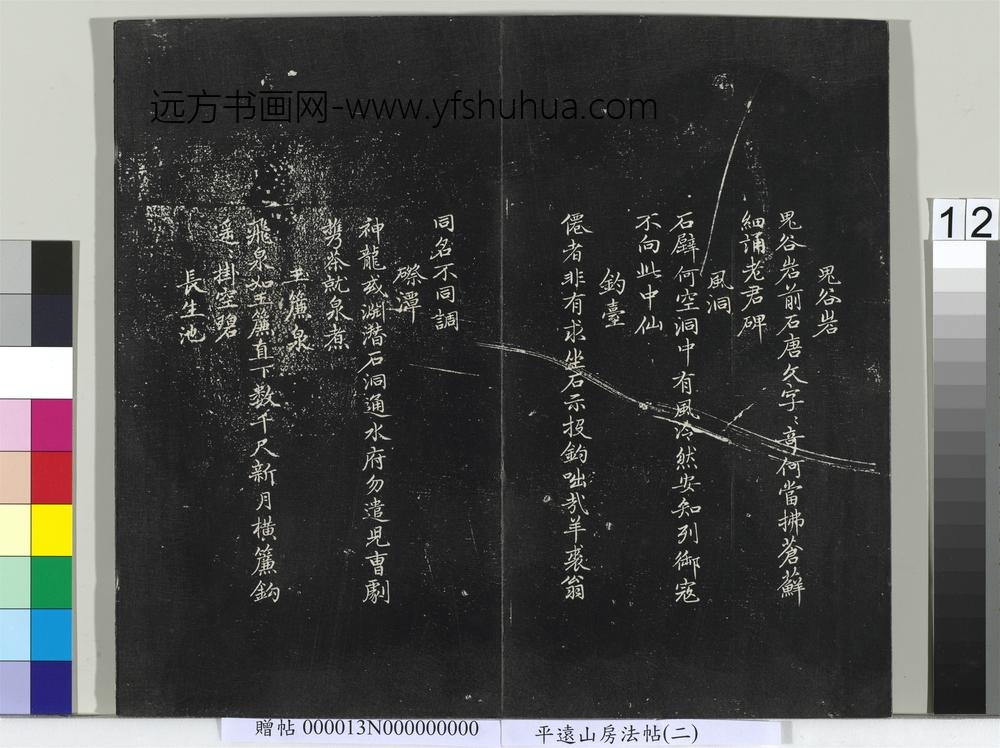 远方书画网-www.yfshuhua.com
12
鬼谷岩
鬼谷岩前石唐文字〻奇何當拂蒼蘚
細誦老君碑
風洞
石壁何空洞中有風泠然安知列御寇
不向此中仙
釣臺
僊者非有求坐石示投鈎咄哉羊裘翁
同名不同調
磜潭
神龍或淵潛石洞通水府勿遣兒曹劇
携茶就泉煮
玉簾泉
飛泉如玉簾直下数千尺新月橫簾鈎
遥〻掛空碧
長生池
贈帖 000013N000000000
平遠山房法帖(二)